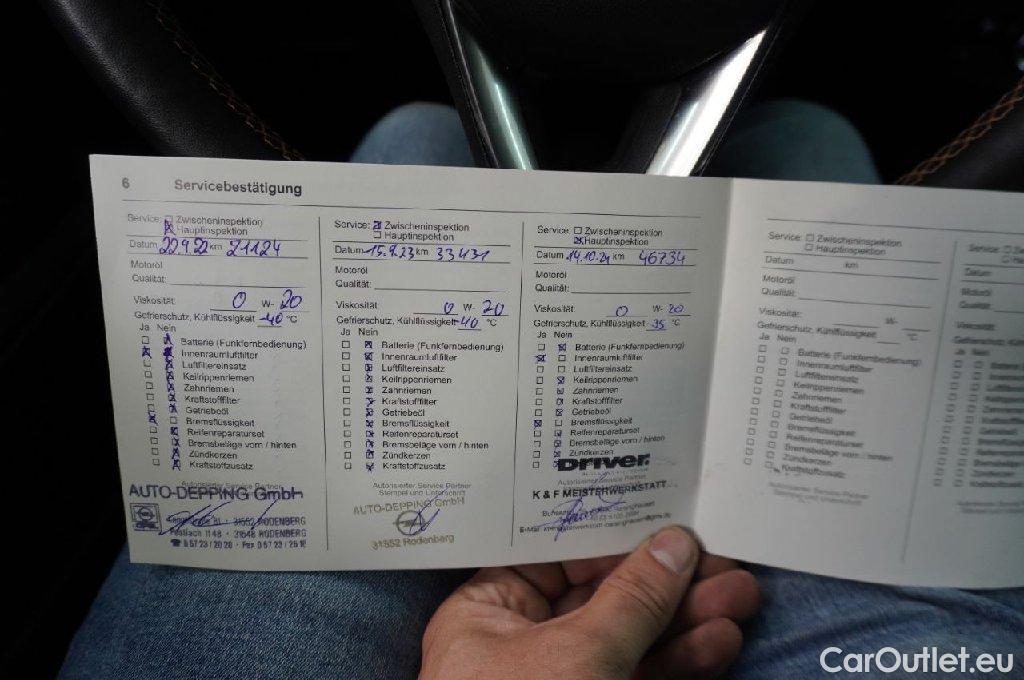 6 Servicebestätigung
Service: Zwischeninspektion
Hauptinspektion
Datum 22.9.22 km 21124
Motoröl
Qualität:
Viskosität: 0 W- 20
Gefrierschutz, Kühlflüssigkeit -40 °C
Ja Nein
Batterie (Funkfernbedienung)
Innenraumluftfilter
Luftfiltereinsatz
Keilrippenriemen
Zahnriemen
Kraftstofffilter
Getriebeöl
Bremsflüssigkeit
Reifenreparaturset
Bremsbeläge vorn / hinten
Zündkerzen
Kraftstoffzusatz
Autorisierter Service Partner
AUTO-DEPPING GmbH
31552 RODENBERG
Postfach 1148 · 31548 RODENBERG
Service: Zwischeninspektion
Hauptinspektion
Datum 15.9.23 km 33431
Motoröl
Qualität:
Viskosität: 0 W- 20
Gefrierschutz, Kühlflüssigkeit -40 °C
Ja Nein
Batterie (Funkfernbedienung)
Innenraumluftfilter
Luftfiltereinsatz
Keilrippenriemen
Zahnriemen
Kraftstofffilter
Getriebeöl
Bremsflüssigkeit
Reifenreparaturset
Bremsbeläge vorn / hinten
Zündkerzen
Kraftstoffzusatz
Autorisierter Service Partner
Stempel und Unterschrift
AUTO-DEPPING GmbH
31552 Rodenberg
Service: Zwischeninspektion
Hauptinspektion
Datum 14.10.24 km 46734
Motoröl
Qualität:
Viskosität: 0 W- 20
Gefrierschutz, Kühlflüssigkeit -35 °C
Ja Nein
Batterie (Funkfernbedienung)
Innenraumluftfilter
Luftfiltereinsatz
Keilrippenriemen
Zahnriemen
Kraftstofffilter
Getriebeöl
Bremsflüssigkeit
Reifenreparaturset
Bremsbeläge vorn / hinten
Zündkerzen
DRIVER.
K & F MEISTERWERKSTATT
Service: Zwischeninspektion
Hauptinspektion
Datum km
Motoröl
Qualität:
Viskosität: W-
Gefrierschutz, Kühlflüssigkeit °C
Ja Nein
Batterie (Funkfernbedienung)
Innenraumluftfilter
Luftfiltereinsatz
Keilrippenriemen
Zahnriemen
Kraftstofffilter
Getriebeöl
Bremsflüssigkeit
Reifenreparaturset
Bremsbeläge vorn / hinten
Zündkerzen
Kraftstoffzusatz
Autorisierter Service Partner
Stempel und Unterschrift
Service:
Datum
Motoröl
Qualität:
Viskosität:
Ja Nein
CarOutlet.eu